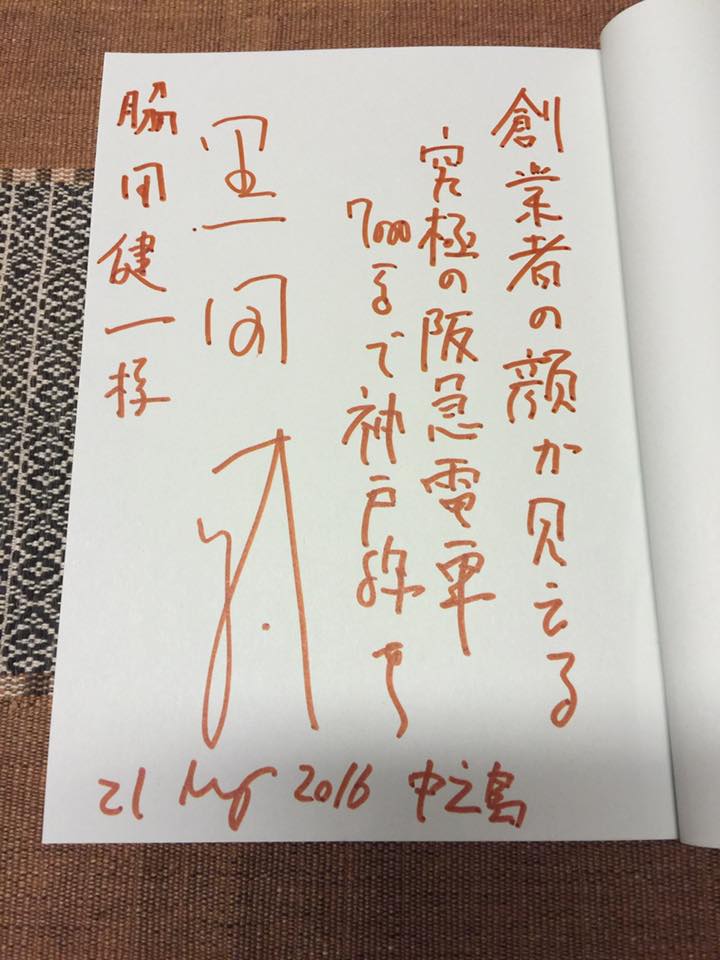 創業者の顔が見える
究極の阪急電車
7000系で神戸線を
黒田
脇田健一様
21 May 2016 中之島